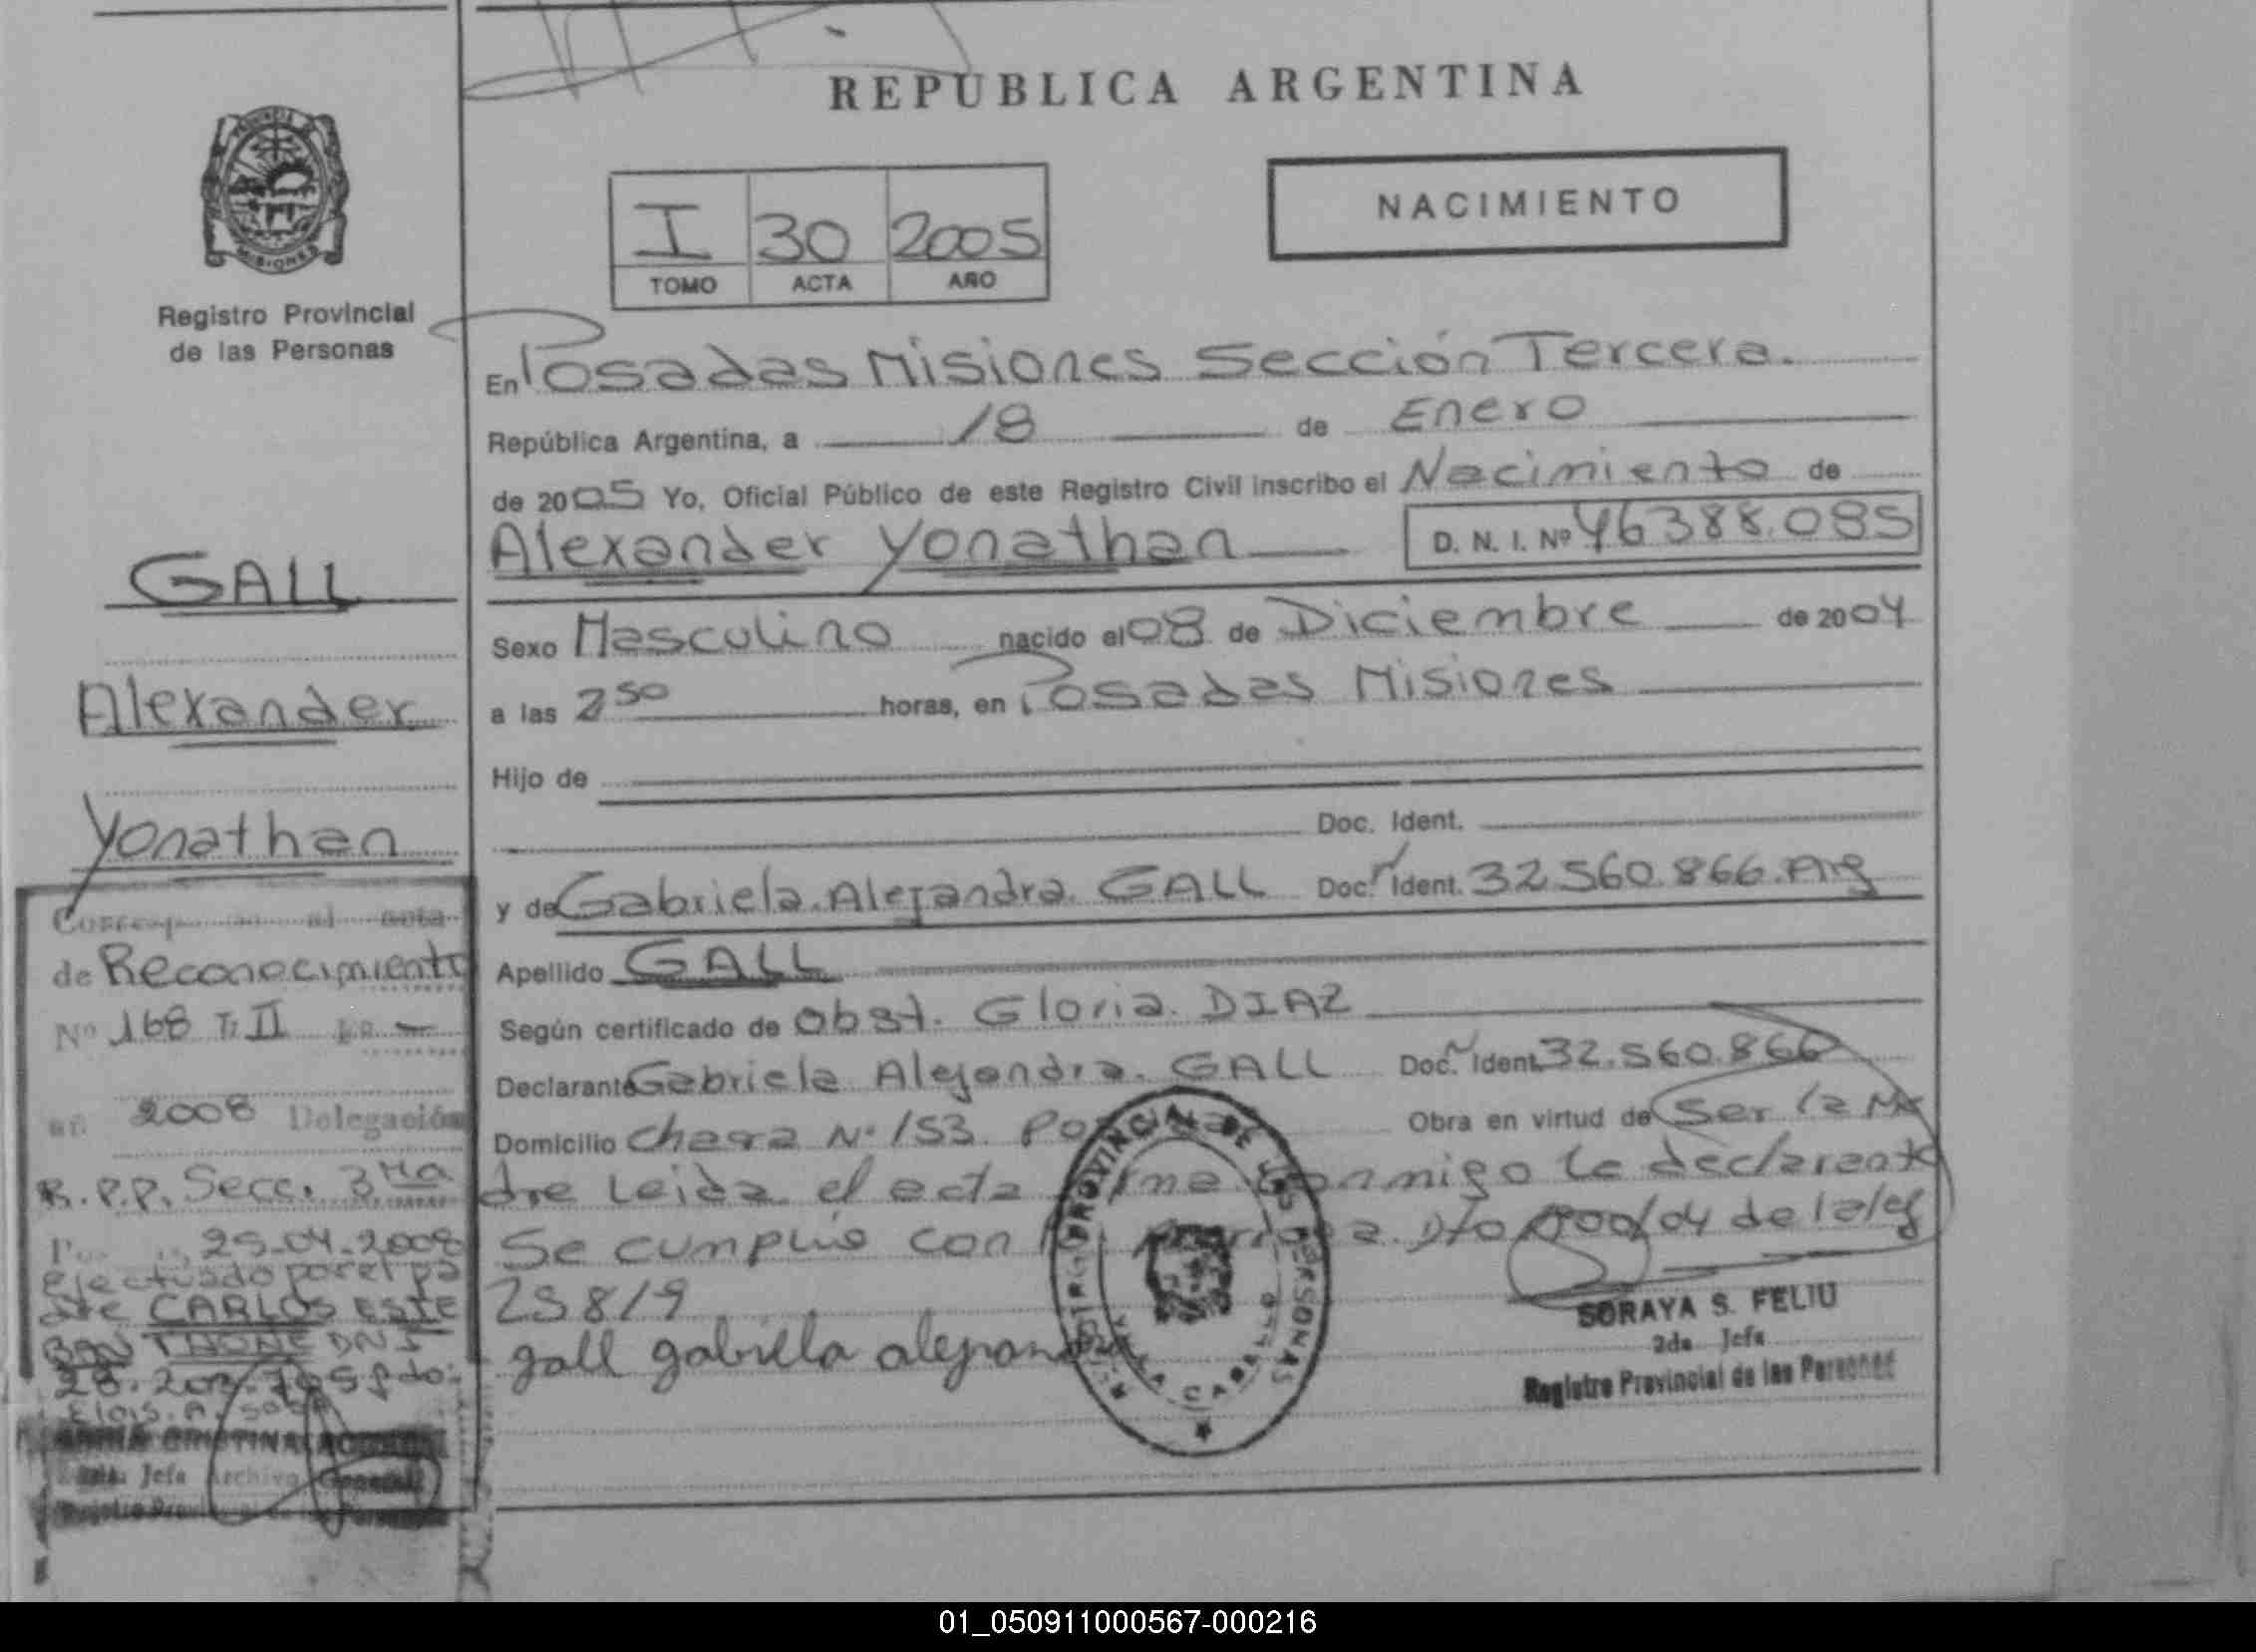 REPUBLICA ARGENTINA
PROVINCIA DE MISIONES
Registro Provincial
de las Personas
I 30 2005
TOMO ACTA AÑO
NACIMIENTO
En Posadas Misiones Sección Tercera.
República Argentina, a 18 de Enero
de 2005 Yo, Oficial Público de este Registro Civil inscribo el Nacimiento de
Alexander Yonathan D. N. I. Nº 46388.085
Sexo Masculino nacido el 08 de Diciembre de 2004
a las 2 50 horas, en Posadas Misiones
Hijo de
Doc. Ident.
y de Gabriela Alejandra GALL Doc. Ident. 32.560.866.Arg
Apellido GALL
Según certificado de Obst. Gloria DIAZ
Declarante Gabriela Alejandra GALL Doc. Ident. 32.560.866
Domicilio Chacra Nº 153 Obra en virtud de Ser la Ma
dre Leida el acta conmigo la declarante
Se cumplió con de la ley
25819
gall gabriela
SORAYA S. FELIU
2da Jefa
Registro Provincial de las Personas
REGISTRO PROVINCIAL DE LAS PERSONAS
GALL
Alexander
Yonathan
al acta
de Reconocimiento
Nº 168 T: II Fº —
año 2008 Delegación
R.P.P. Secc. 3ra
29-04-2008
efectuado por el pa
dre CARLOS ESTE
BAN DNI
Jefa Archivo General
01_050911000567-000216